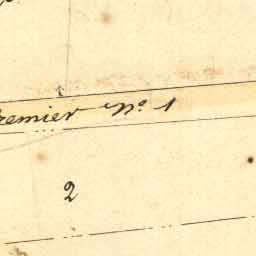 remier No. 1
2